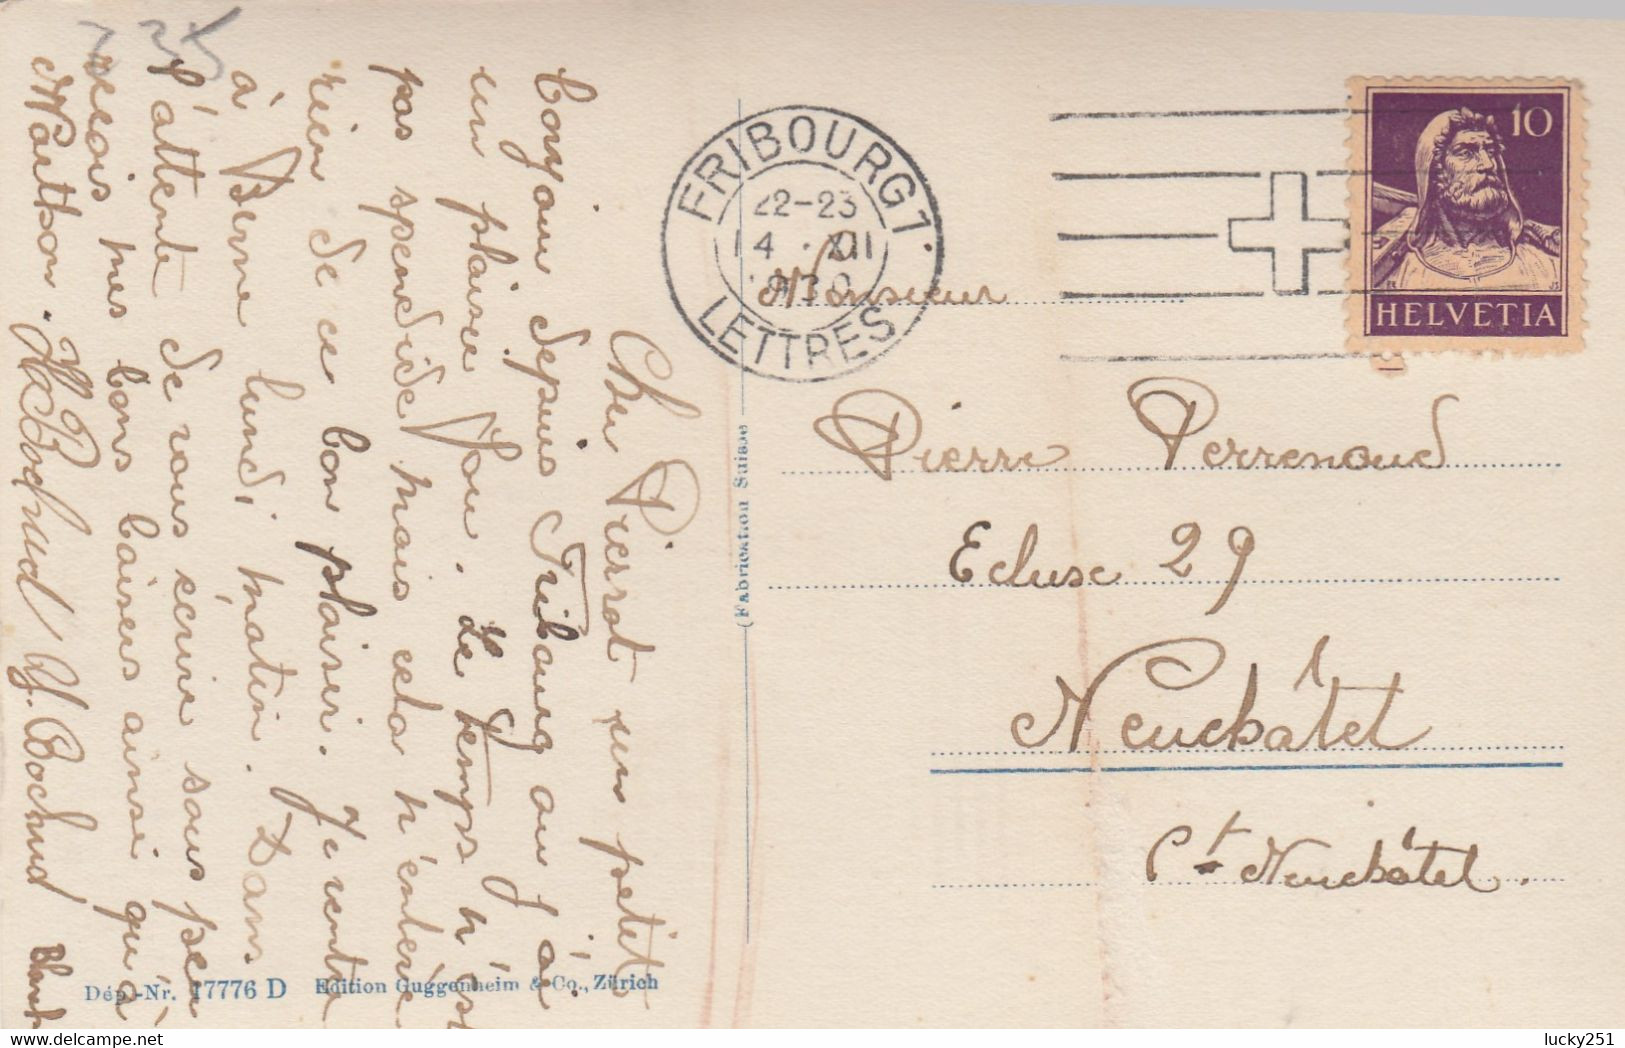 Cher Pierrot un petit
bonjour depuis Fribourg ou j'ai
un plaisir fou. Le temps n'est
pas spendide mais cela n'enlève
rien de ce bon plaisir. Je rentre
à Berne lundi matin. Dans
l'attente de vous écrire sous peu
reçois mes bons baisers ainsi qu'à
H. Bochud Y. Bochud
235
FRIBOURG 1
22-23
14 . XII
1930
LETTRES
10
HELVETIA
Monsieur
Pierre Perrenoud
Ecluse 29
Neuchâtel
Ct Neuchâtel.
(Fabrication Suisse
Dép.-Nr. 17776 D Edition Guggenheim & Co., Zürich
lucky251